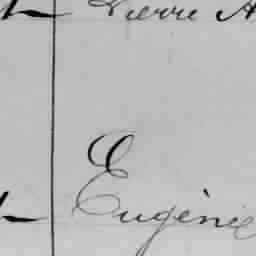 Pierre A
Eugénie